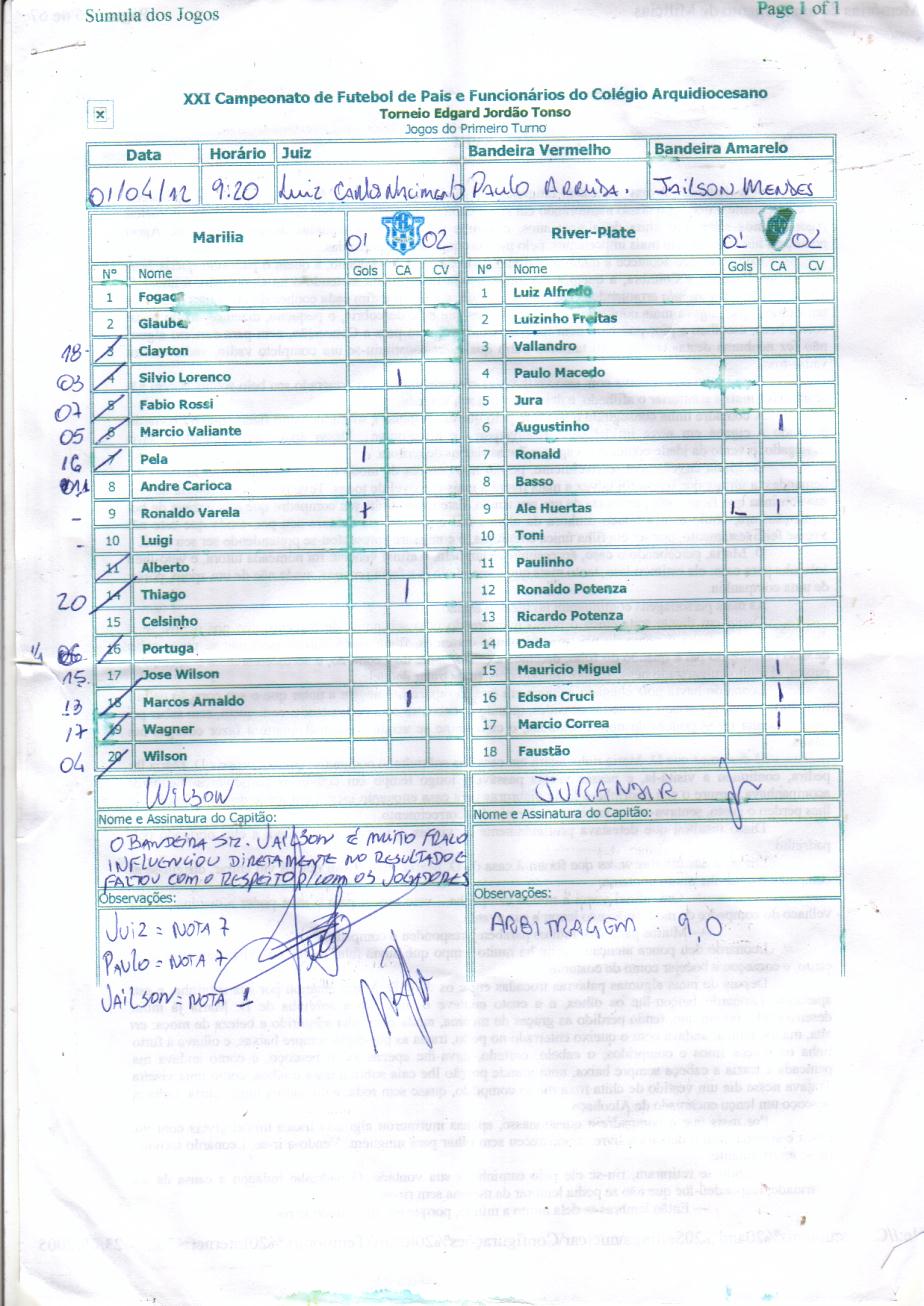 Súmula dos Jogos
Page 1 of 1
XXI Campeonato de Futebol de Pais e Funcionários do Colégio Arquidiocesano
Torneio Edgard Jordão Tonso
Jogos do Primeiro Turno
Data Horário Juiz Bandeira Vermelho Bandeira Amarelo
01/04/12 9:20 Luiz Carlos Nascimento Paulo Arruda. Jailson Mendes
Marilia 01 02 River-Plate 01 02
Nº Nome Gols CA CV Nº Nome Gols CA CV
1 Fogaça 1 Luiz Alfredo
2 Glaube 2 Luizinho Freitas
18 3 Clayton 3 Vallandro
03 4 Silvio Lorenco I 4 Paulo Macedo
07 5 Fabio Rossi 5 Jura
05 6 Marcio Valiante 6 Augustinho I
16 7 Pela I 7 Ronald
8 Andre Carioca 8 Basso
- 9 Ronaldo Varela 9 Ale Huertas I
- 10 Luigi 10 Toni
11 Alberto 11 Paulinho
20 14 Thiago I 12 Ronaldo Potenza
15 Celsinho 13 Ricardo Potenza
16 Portuga 14 Dada
15. 17 Jose Wilson 15 Mauricio Miguel I
13 18 Marcos Arnaldo I 16 Edson Cruci I
17 19 Wagner 17 Marcio Correa I
04 20 Wilson 18 Faustão
Wilson JURANDIR
Nome e Assinatura do Capitão: Nome e Assinatura do Capitão:
O BANDEIRA Sr. JAILSON É MUITO FRACO
INFLUENCIOU DIRETAMENTE NO RESULTADO E
FALTOU COM O RESPEITO P/ COM OS JOGADORES
Observações: Observações:
JUIZ = NOTA 7 ARBITRAGEM 9,0
PAULO = NOTA 7
JAILSON = NOTA 1